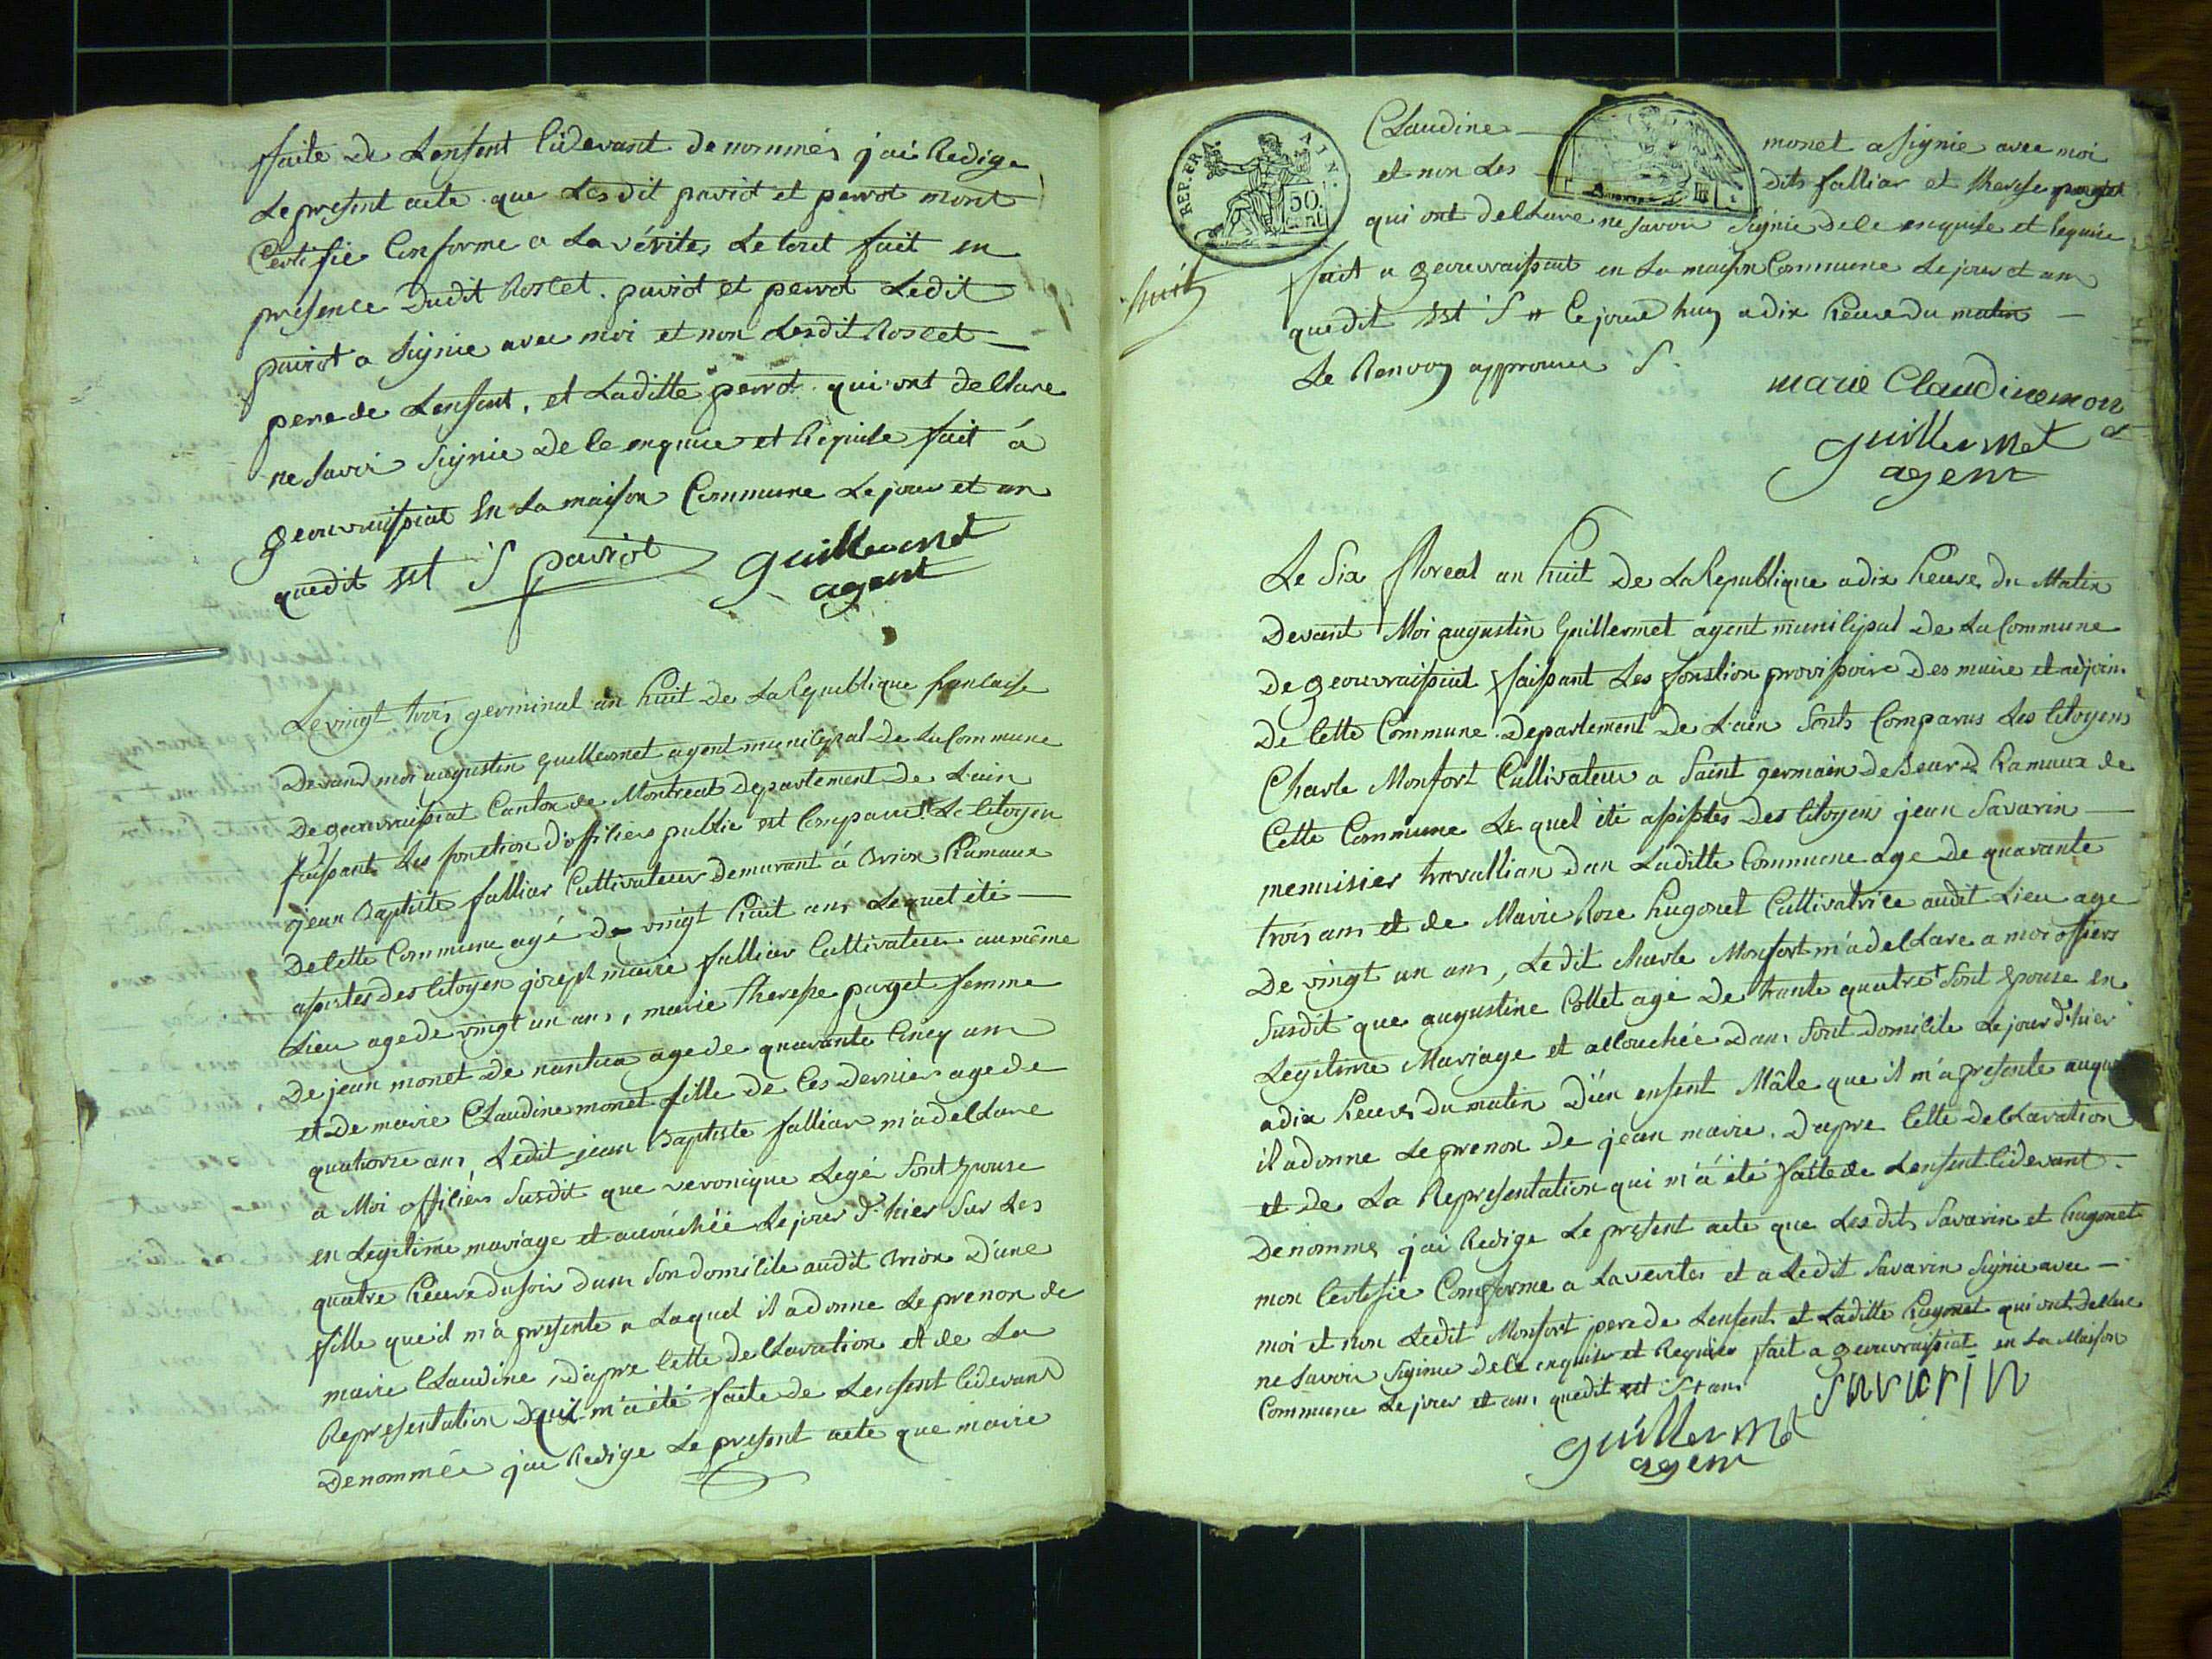 faite de Lenfent Cidevant denommés j'ai Redige
Le present acte que Lesdit paviot et perrot mont
Certifie Conforme a La vérités Le tout fait en
presence Dudit Roslet. paviot et perrot Ledit
paviot a signie avec moi et non Lesdit Roslet
pere de Lenfent, et Laditte perrot qui ont declare
ne savoir signie De ce enquise et Requise fait á
geouvraissiat En La maison Commune Le jour et an
quedit est S paviot guillermet
agent
Le vingt trois germinal an huit de La Republique francaise
Devand moi augustin guillermet agent municipal De La Commune
De geouvraissiat Canton de Montreal Departement De L'ain
faissant Les fonction d'officiers public est Comparu # Le Citoyen
jean Baptiste falliar Cultivateur Demurant á Brion Ramaux
De Cette Commune agé de vingt huit ans Lequel été
assistes des Citoyen joseph marie falliar Cultivateur au même
Lieu age de vingt un ans, marie Therese purget femme
De jean monet de nantua age de quarante Cinq ans
et De marie Claudine monet fille de Ces Dernier age de
quatorze ans, Ledit jean Baptiste falliar m'a declare
a Moi officiers Susdit que veronique Legé Sont Epouse
en Legitime mariage et acouchée Le jour d'hier Sur Les
quatre heure du soir dans son domicile audit Brion D'une
fille queil m'a presente a Laquel il a donne Le prenon de
marie Claudine, d'apre Cette declaration et de La
Representation qui m'a été faite de Lenfent Cidevand
Denommée j'ai Redige Le present acte que marie
REP. FRA. AIN.
50 cent
Claudine monet a signie avec moi
et non Les dits falliar et therese purget
qui ont declare ne savoir signie de ce enquise et Requise
huit
fait a geouvraissiat en La maison Commune Le jour et an
quedit est S # Ce jourd huy a dix heure du matin
Le Renvoy approuvee S.
marie Claudine mon
et
guillermet
agent
Le Six floreal an huit De La Republique a dix heure du Matin
Devant Moi augustin Guillermet agent municipal De La Commune
De geouvraissiat faissant Les fonstion provissoire Des maire et adjoin.
De Cette Commune. Departement De L'ain Sonts Comparus Les Citoyens
Charle Monfort Cultivateur a Saint germain de Beard Ramaux de
Cette Commune Le quel été assistes Des Citoyens jean Savarin
menuisier travallian dan Laditte Commune age De quarante
trois ans et de Marie Roze hugonet Cultivatrice audit Lieu age
De vingt un ans, Ledit charle Monfort m'a declare a moi offiers
Susdit que augustine Collet agé de trante quatre Sont Epouse en
Legitime Mariage et accouchée Dans Sont Domicile Le jour d'hier
a dix heures du matin D'un enfent Mâle que il m'a presente auquel
il a donne Le prenon de jean marie. D'apre Cette declaration
et de La Representation qui m'a été faite de Lenfent Cidevant.
Denommé j'ai Redige Le present acte que Lesdits Savarin et hugonet
mon Certifie Comforme a La verites et a Ledit Savarin signie avec
moi et non Ledit Monfort pere de Lenfent et Laditte hugonet qui ont declare
ne savoir signie de ce enquise et Requise fait a geouvraissiat en La Maison
Commune Le jour et ans quedit est S+ ans
guillermet savarin
agent